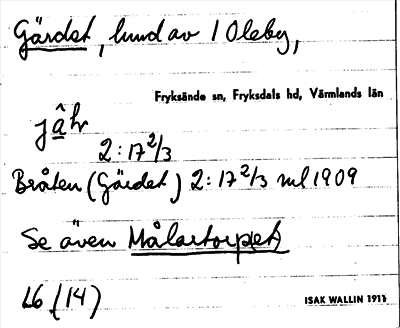 Gärdet, lund av 1 Oleby,
Fryksände sn, Fryksdals hd, Värmlands län
jâhr
2:17 2/3
Bråten (Gärdet) 2:17 2/3 ml 1909
Se även Målartorpet
L6 (14)
ISAK WALLIN 1911